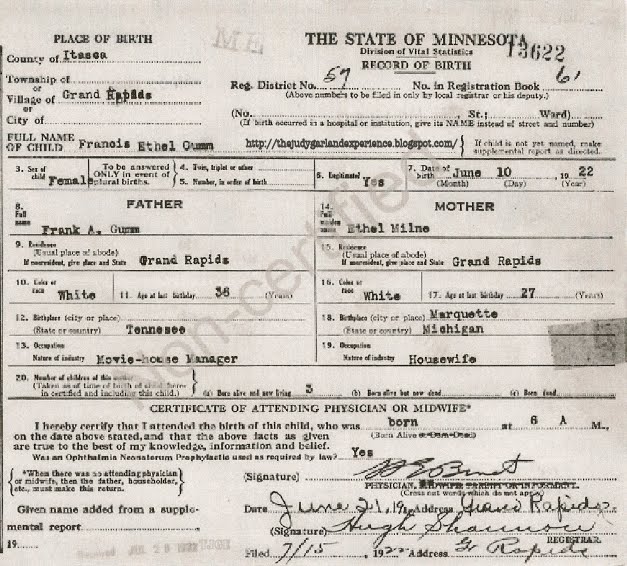 PLACE OF BIRTH
County of Itasca
Township of
or
Village of Grand Rapids
or
City of
THE STATE OF MINNESOTA
Division of Vital Statistics
RECORD OF BIRTH
13622
Reg. District No. 57 No. in Registration Book 61
(Above numbers to be filled in only by local registrar or his deputy.)
(No. St.; Ward)
(If birth occurred in a hospital or institution, give its NAME instead of street and number)
FULL NAME
OF CHILD Francis Ethel Gumm
http://thejudygarlandexperience.blogspot.com/
If child is not yet named, make
supplemental report as directed.
3. Sex of
child Female
To be answered
ONLY in event of
plural births.
4. Twin, triplet or other
5. Number, in order of birth
6. Legitimate? Yes
7. Date of
birth June 10 1922
(Month) (Day) (Year)
FATHER
8.
Full
name Frank A. Gumm
9. Residence
(Usual place of abode)
If nonresident, give place and State Grand Rapids
10. Color or
race White 11. Age at last birthday 36 (Years)
12. Birthplace (city or place)
(State or country) Tennesee
13. Occupation
Nature of industry Movie-house Manager
MOTHER
14.
Full
maiden
name Ethel Milne
15. Residence
(Usual place of abode)
If nonresident, give place and State Grand Rapids
16. Color or
race White 17. Age at last birthday 27 (Years)
18. Birthplace (city or place) Marquette
(State or country) Michigan
19. Occupation
Nature of industry Housewife
20. Number of children of this mother
(Taken as of time of birth of child herein
certified and including this child.)
(a) Born alive and now living 3 (b) Born alive but now dead (c) Born dead
CERTIFICATE OF ATTENDING PHYSICIAN OR MIDWIFE*
I hereby certify that I attended the birth of this child, who was born at 6 A M.,
(Born Alive or Born Dead)
on the date above stated, and that the above facts as given
are true to the best of my knowledge, information and belief.
Was an Ophthalmia Neonatorum Prophylactic used as required by law? Yes
*When there was no attending physician
or midwife, then the father, householder,
etc., must make this return.
(Signature)
PHYSICIAN,
(Cross out words which do not apply)
Given name added from a supple-
mental report
19
Date June 21, 19 Address Grand Rapids
(Signature) Hugh Shannon
REGISTRAR.
Filed 7/15 1922 Address Gr Rapids
Non-certified